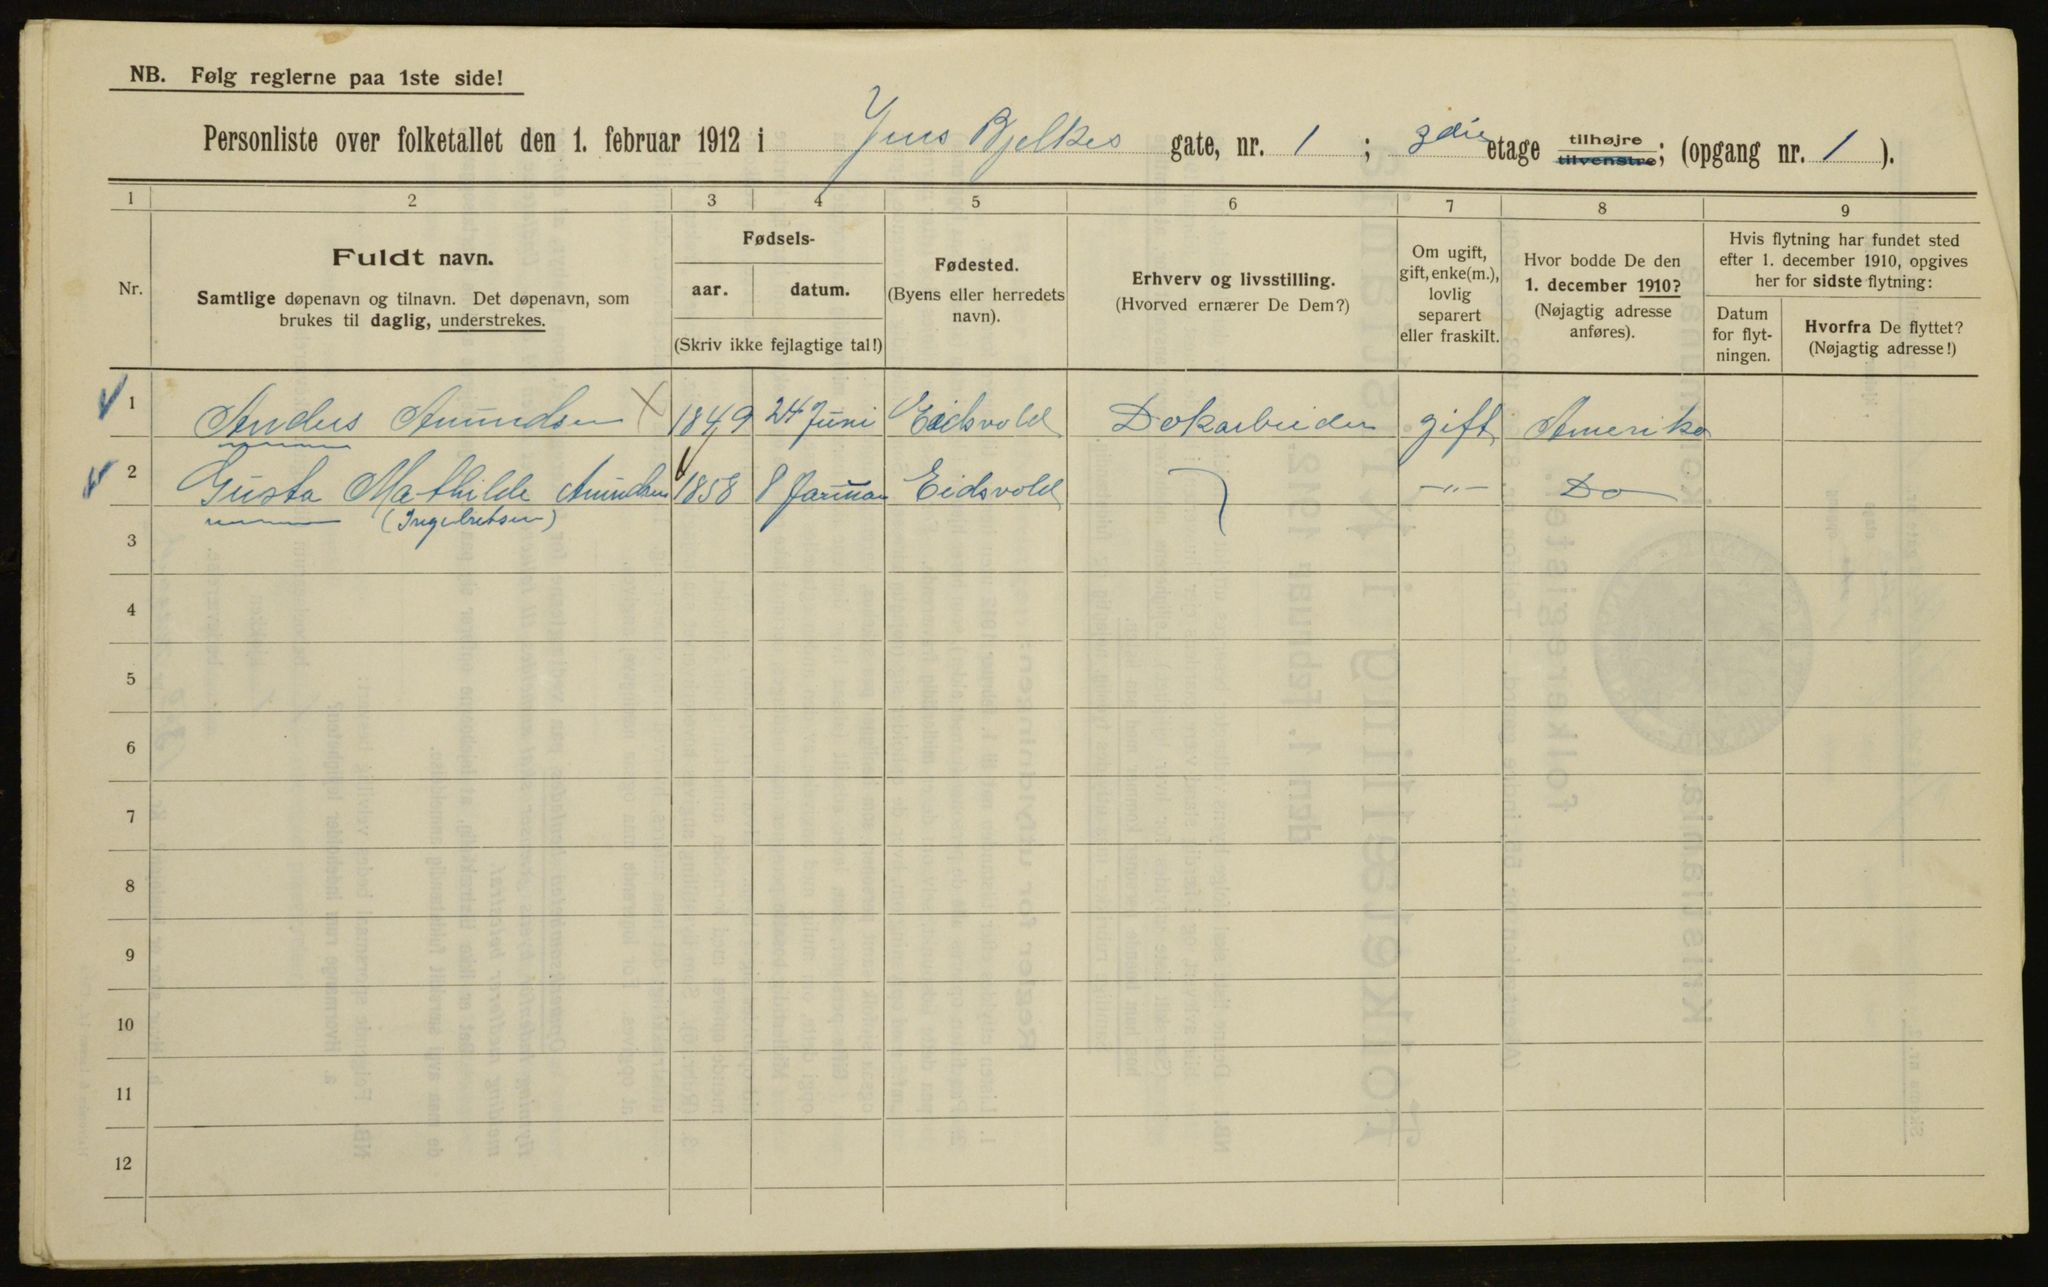 NB. Følg reglerne paa 1ste side!
Personliste over folketallet den 1. februar 1912 i Jens Bjelkes gate, nr. 1 ; 3die etage tilhøjre tilvenstre; (opgang nr. 1 ).
1 2 3 4 5 6 7 8 9
Nr.
Fuldt navn.
Samtlige døpenavn og tilnavn. Det døpenavn, som
brukes til daglig, understrekes.
Fødsels-
aar. datum.
(Skriv ikke fejlagtige tal!)
Fødested.
(Byens eller herredets
navn).
Erhverv og livsstilling.
(Hvorved ernærer De Dem?)
Om ugift,
gift, enke(m.),
lovlig
separert
eller fraskilt.
Hvor bodde De den
1. december 1910?
(Nøjagtig adresse
anføres).
Hvis flytning har fundet sted
efter 1. december 1910, opgives
her for sidste flytning:
Datum
for flyt-
ningen.
Hvorfra De flyttet?
(Nøjagtig adresse!)
1 Anders Amundsen 1849 24 Juni Eidsvold Dokarbeider gift Amerika
2 Gusta Mathilde Amundsen 1858 8 Januar Eidsvold -"- Do
(Ingebretsen)
3
4
5
6
7
8
9
10
11
12